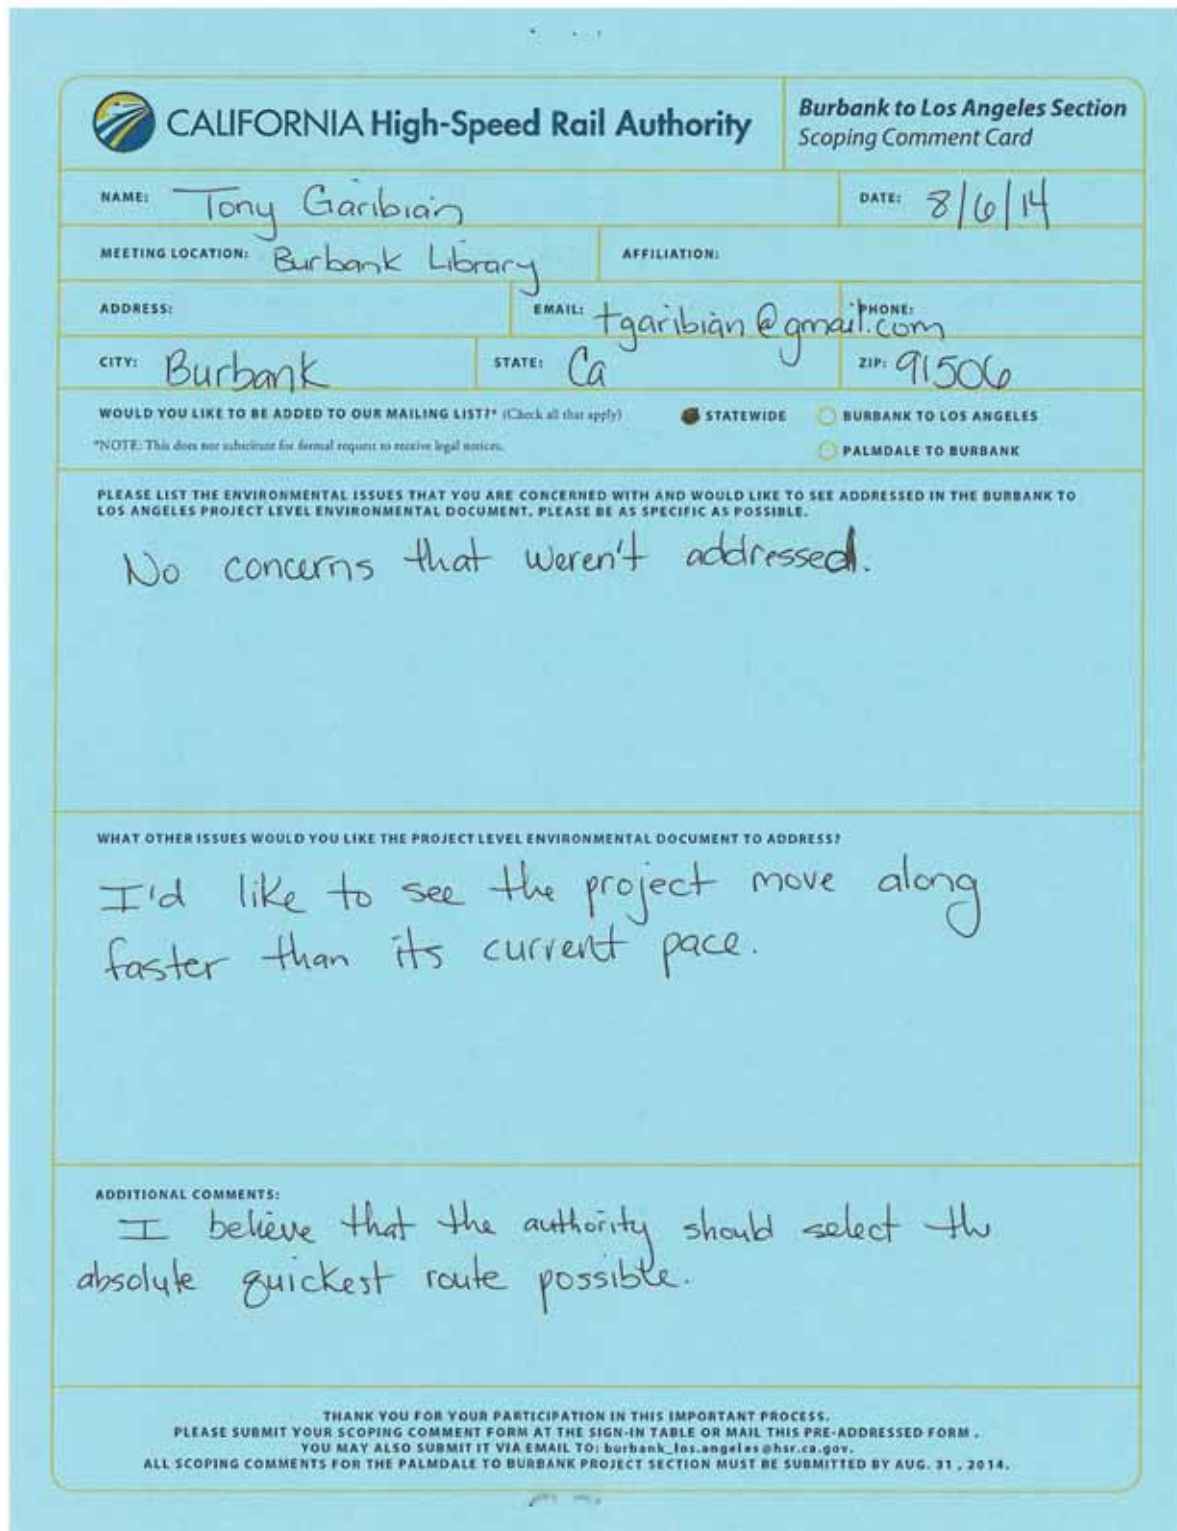 CALIFORNIA High-Speed Rail Authority
Burbank to Los Angeles Section
Scoping Comment Card
NAME: Tony Garibian
DATE: 8/6/14
MEETING LOCATION: Burbank Library
AFFILIATION:
ADDRESS:
EMAIL: tgaribian@gmail.com
PHONE:
CITY: Burbank
STATE: Ca
ZIP: 91506
WOULD YOU LIKE TO BE ADDED TO OUR MAILING LIST?* (Check all that apply)
STATEWIDE
BURBANK TO LOS ANGELES
*NOTE: This does not substitute for formal request to receive legal notices.
PALMDALE TO BURBANK
PLEASE LIST THE ENVIRONMENTAL ISSUES THAT YOU ARE CONCERNED WITH AND WOULD LIKE TO SEE ADDRESSED IN THE BURBANK TO
LOS ANGELES PROJECT LEVEL ENVIRONMENTAL DOCUMENT. PLEASE BE AS SPECIFIC AS POSSIBLE.
No concerns that weren't addressed.
WHAT OTHER ISSUES WOULD YOU LIKE THE PROJECT LEVEL ENVIRONMENTAL DOCUMENT TO ADDRESS?
I'd like to see the project move along
faster than its current pace.
ADDITIONAL COMMENTS:
I believe that the authority should select the
absolute quickest route possible.
THANK YOU FOR YOUR PARTICIPATION IN THIS IMPORTANT PROCESS.
PLEASE SUBMIT YOUR SCOPING COMMENT FORM AT THE SIGN-IN TABLE OR MAIL THIS PRE-ADDRESSED FORM.
YOU MAY ALSO SUBMIT IT VIA EMAIL TO: burbank_los.angeles@hsr.ca.gov.
ALL SCOPING COMMENTS FOR THE PALMDALE TO BURBANK PROJECT SECTION MUST BE SUBMITTED BY AUG. 31, 2014.